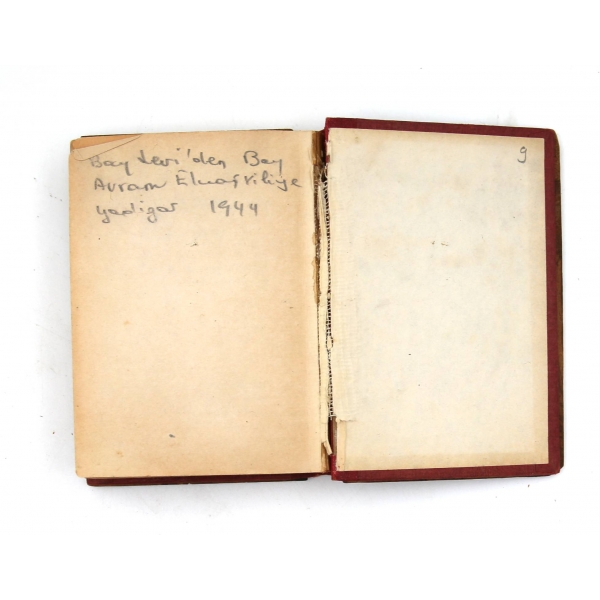 Bay Levi'den Bay
Avram
yadigar 1944
9